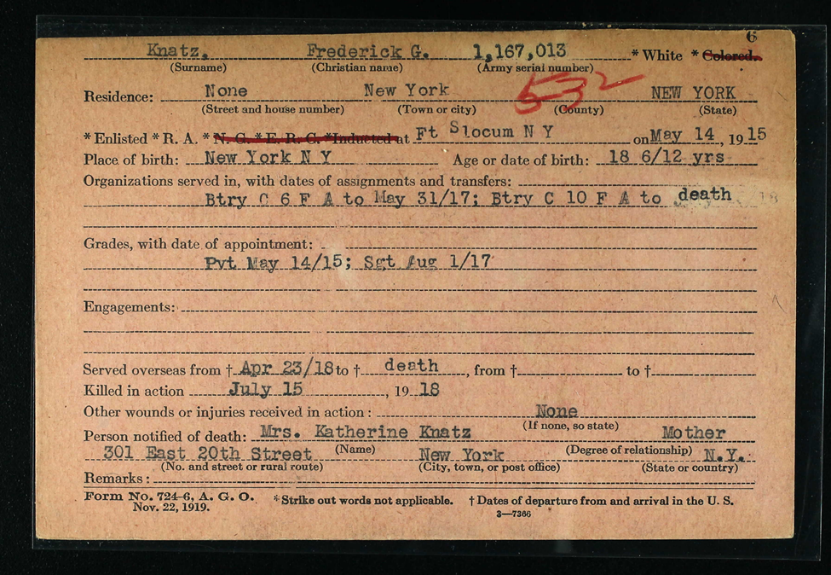 6
Knatz, Frederick G. 1,167,013 * White * Colored.
(Surname) (Christian name) (Army serial number)
532
Residence: None New York NEW YORK
(Street and house number) (Town or city) (County) (State)
* Enlisted * R. A. * N. G. * E. R. C. * Inducted at Ft Slocum N Y on May 14, 1915
Place of birth: New York N Y Age or date of birth: 18 6/12 yrs
Organizations served in, with dates of assignments and transfers:
Btry C 6 F A to May 31/17; Btry C 10 F A to death
Grades, with date of appointment:
Pvt May 14/15; Sgt Aug 1/17
Engagements:
Served overseas from † Apr 23/18 to † death, from † to †
Killed in action July 15, 1918
Other wounds or injuries received in action: None
(If none, so state)
Person notified of death: Mrs. Katherine Knatz Mother
(Name) (Degree of relationship)
301 East 20th Street New York N.Y.
(No. and street or rural route) (City, town, or post office) (State or country)
Remarks:
Form No. 724-6, A. G. O. * Strike out words not applicable. † Dates of departure from and arrival in the U. S.
Nov. 22, 1919. 3—7366